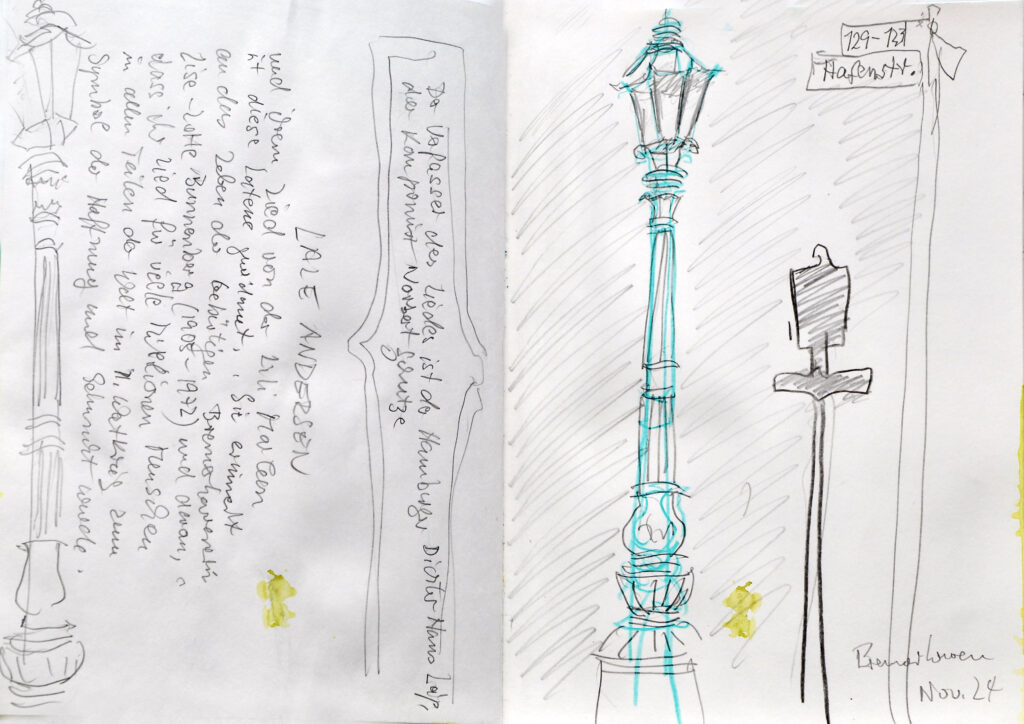 Der Verfasser des Liedes ist der Hamburger Dichter Hans Leip,
der Komponist Norbert Schultze
LALE ANDERSEN
und ihrem Lied von der Lili Marleen
ist diese Laterne gewidmet. Sie erinnert
an das Leben der gebürtigen Bremerhavenerin
Lise-Lotte Bunnenberg (1905-1972) und daran,
dass ihr Lied für viele Millionen Menschen
in allen Teilen der Welt im II. Weltkrieg zum
Symbol der Hoffnung und Sehnsucht wurde.
129-131
Hafenstr.
Bremerhaven
Nov. 24